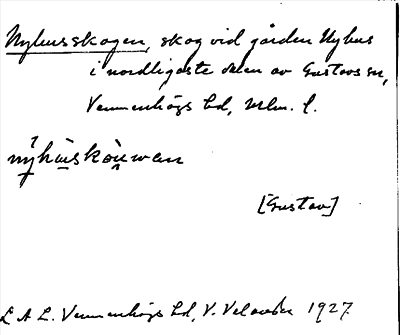 Nyhusskogen, skog vid gården Nyhus
i nordligaste delen av Gustavs sn,
Vemmenhögs hd, Mlm. l.
nýhùskòu̯wan
[Gustav]
L A L. Vemmenhögs hd, V. Velander 1927.